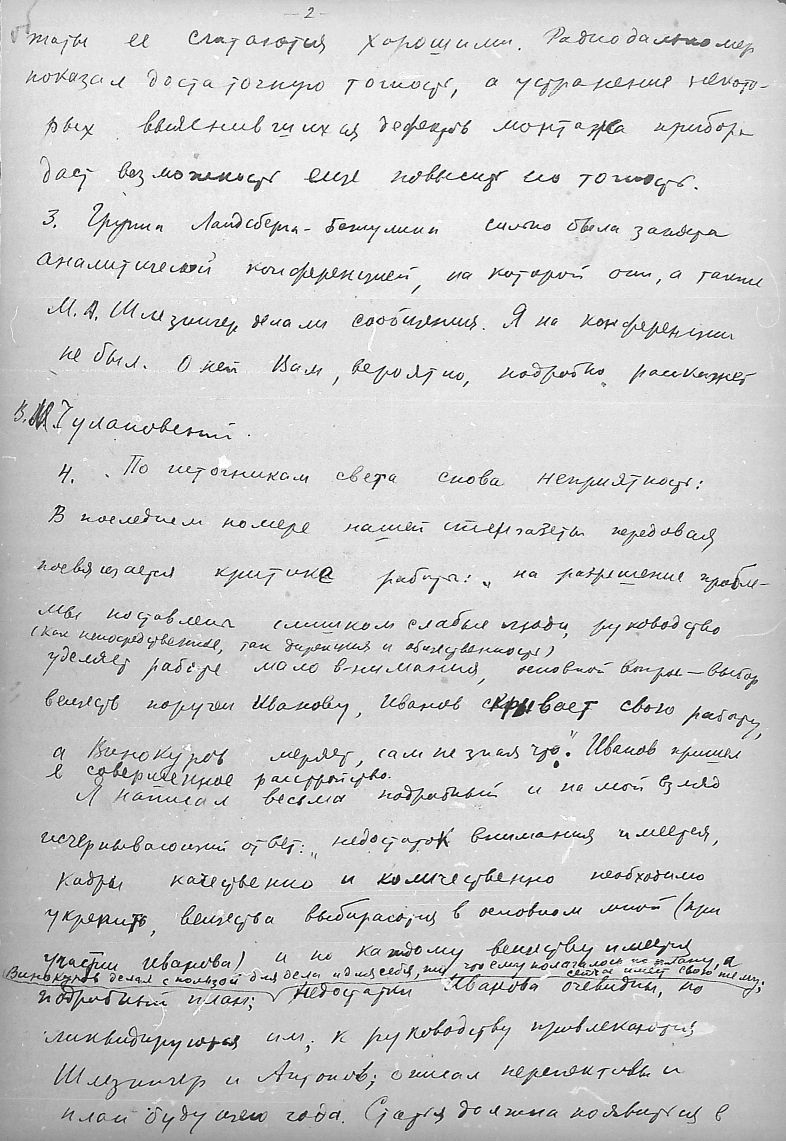 - 2 -
таты ее считаются хорошими. Радиодальномер
показал достаточную точность, а устранение некото-
рых выяснившихся дефектов монтажа прибора
даст возможность еще повысить его точность.
3. Группа Ландсберга - Бажулина сильно была занята
аналитической конференцией, на которой они, а также
М.А. Шлезингер делали сообщения. Я на конференции
не был. О ней Вам, вероятно, подробно расскажет
В.М. Чулановский.
4. По источникам света снова неприятность:
В последнем номере нашей стенгазеты передовая
посвящается критике работы: „на разрешение пробле-
мы поставлены слишком слабые люди, руководство
(как непосредственное, так дирекция и общественность)
уделяет работе мало внимания, основной вопрос — выбор
веществ поручен Иванову, Иванов скрывает свою работу,
а Винокуров меряет, сам не зная что". Иванов пришел
в совершенное расстройство.
Я написал весьма подробный и на мой взгляд
исчерпывающий ответ: „недостаток внимания имеется,
кадры качественно и количественно необходимо
укрепить, вещества выбираются в основном мной (при
участии Иванова) и по каждому веществу имеется
Винокуров делал с пользой для дела и для себя, то что ему полагалось по плану, а сейчас имеет свою тему;
подробный план; недостатки Иванова очевидны, но
ликвидируются им; к руководству привлекаются
Шлезингер и Антонов; описал перспективы и
план будущего года. Статья должна появиться в